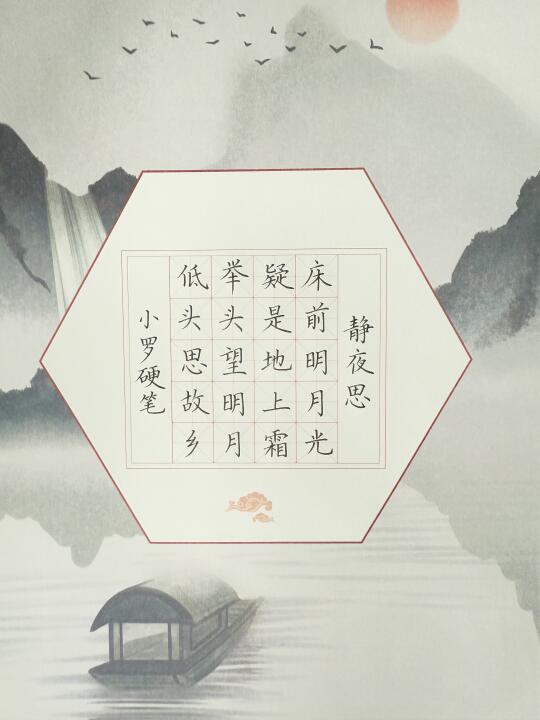 静夜思
床前明月光
疑是地上霜
举头望明月
低头思故乡
小罗硬笔